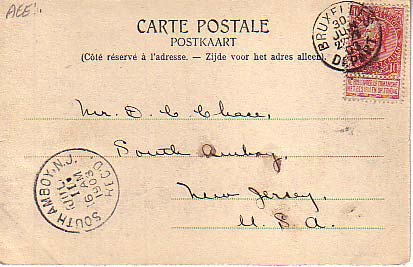 AEE
CARTE POSTALE
POSTKAART
(Côté réservé à l'adresse. - Zijde voor het adres alleen)
BRUXELLES
30
JUIN
DEPART
10
Mr. O. C. Chase,
South Amboy,
New Jersey,
U.S.A.
SOUTH AMBOY, N.J.
JUL
11
6 AM
1903
REC'D.